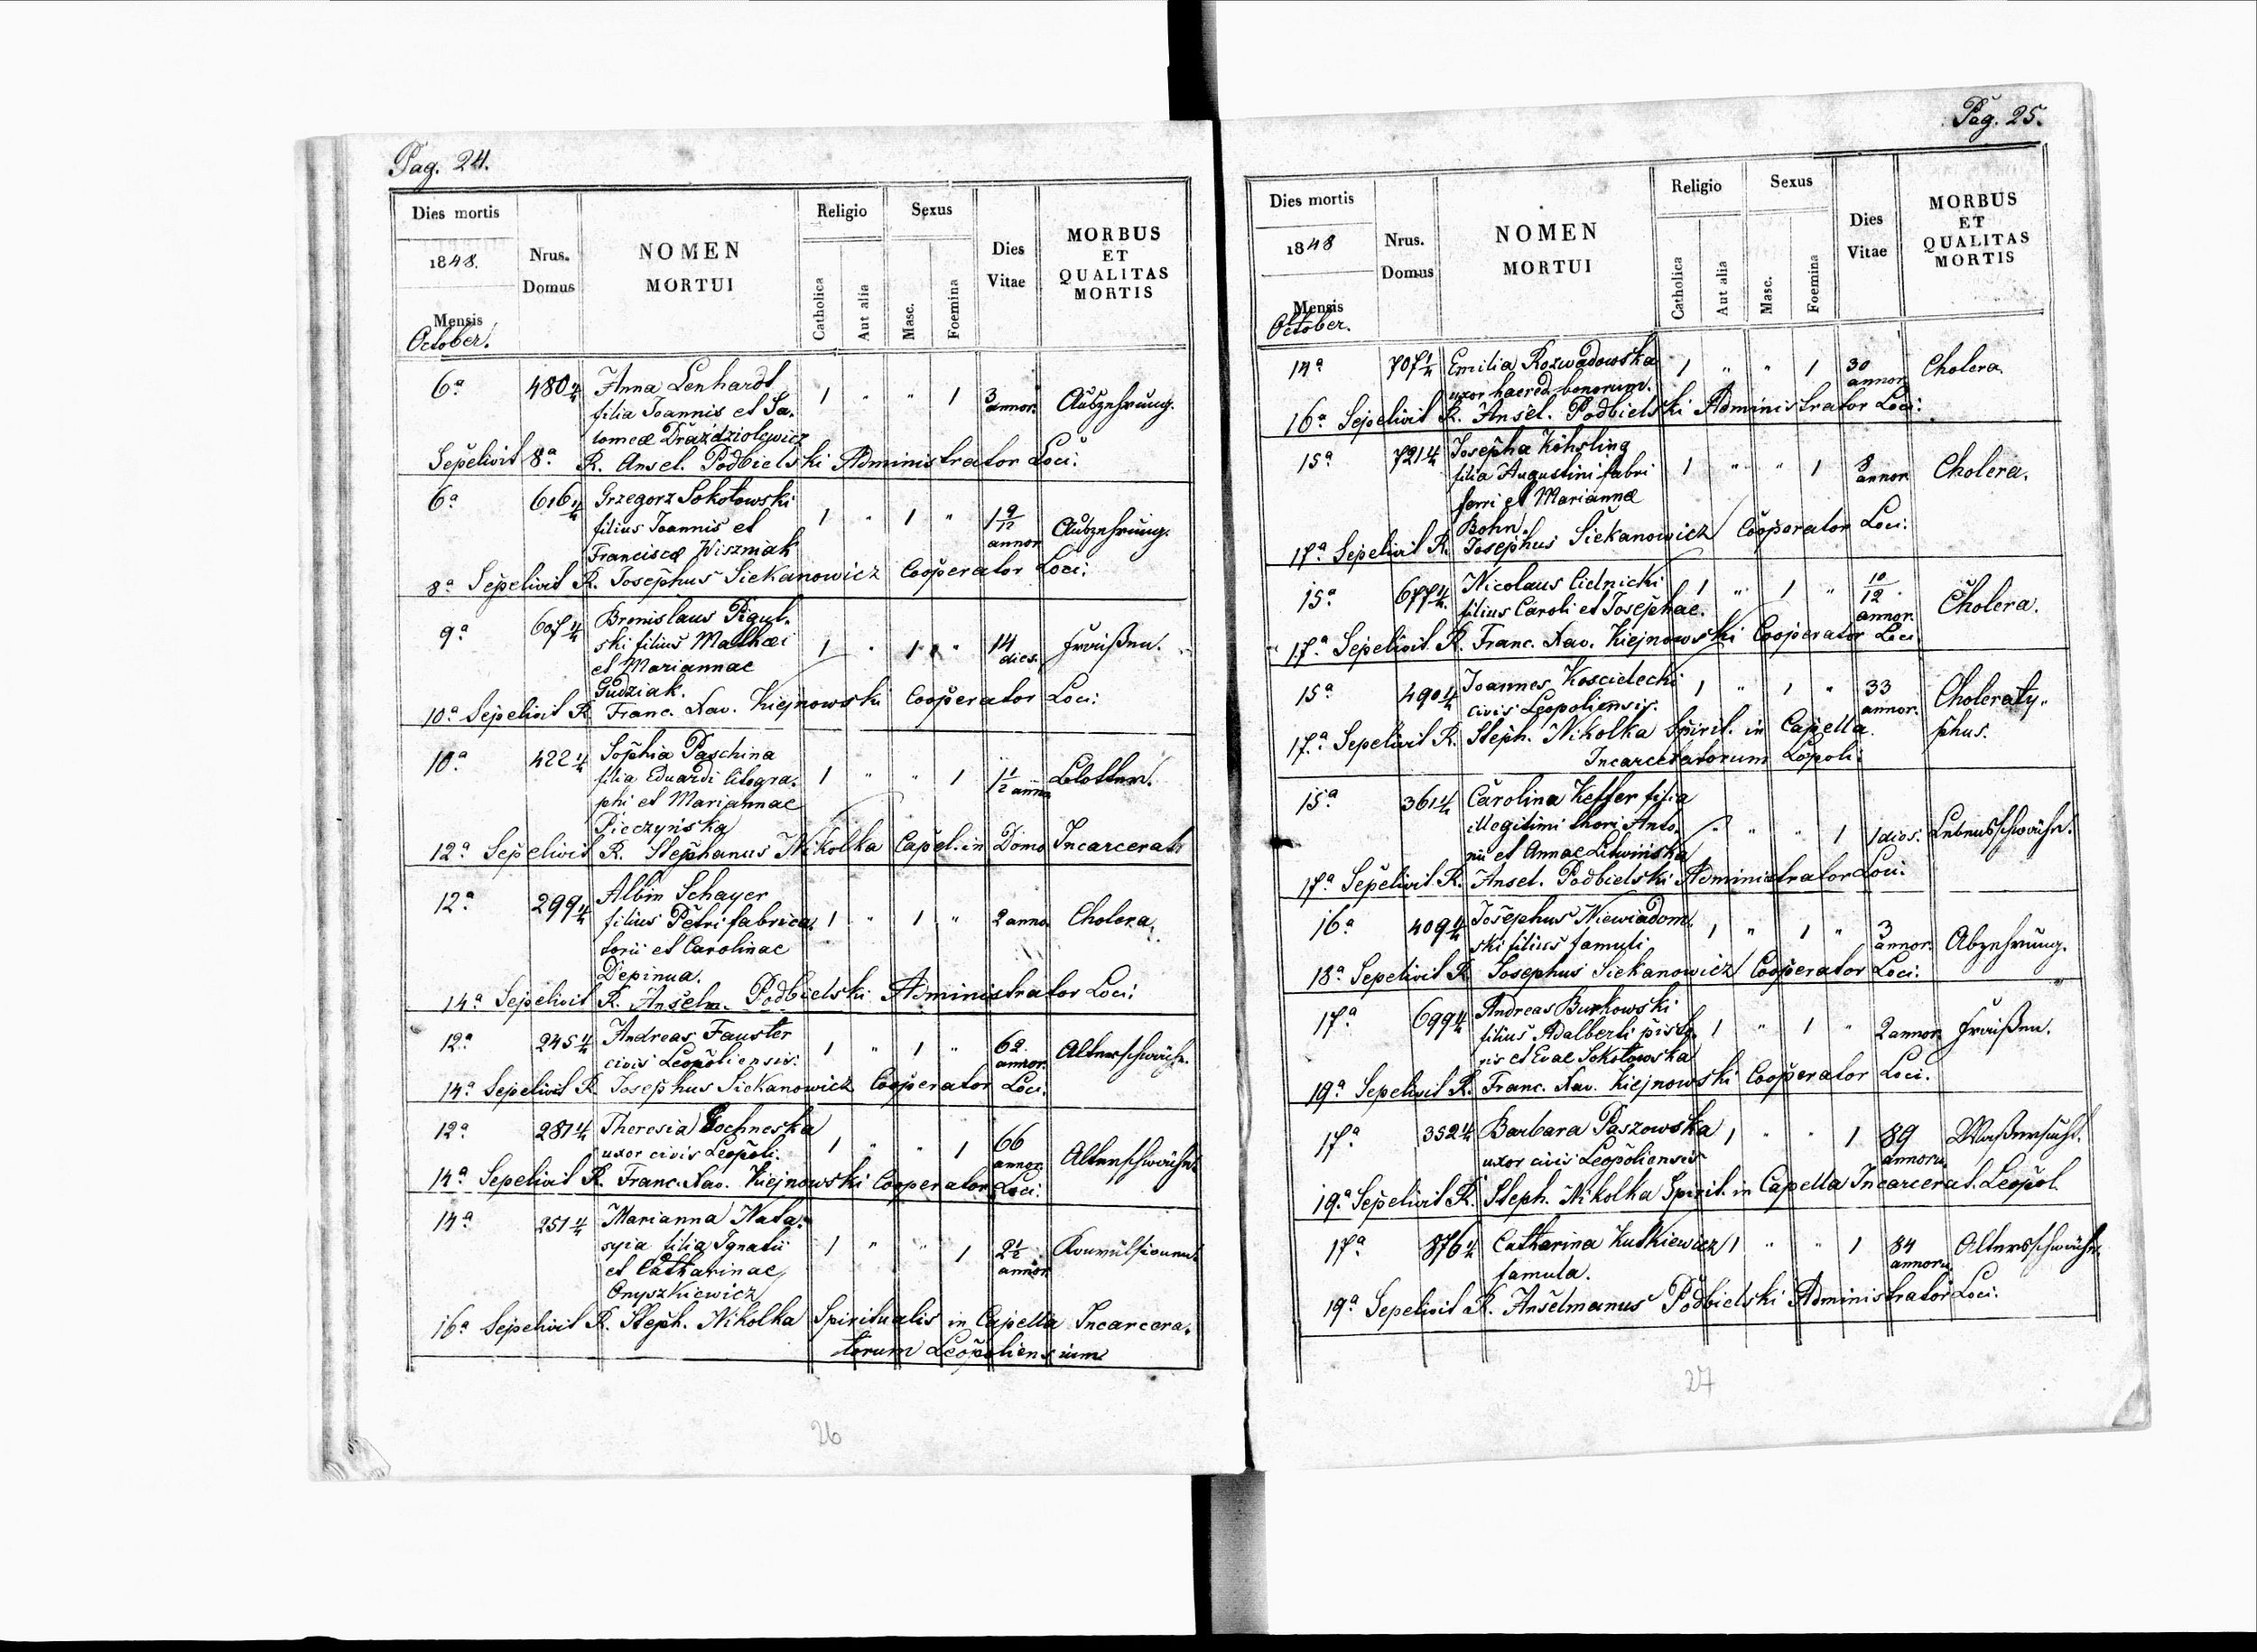 Pag. 24.
Dies mortis
1848.
Mensis
October.
Nrus.
Domus
NOMEN
MORTUI
Religio
Catholica
Aut alia
Sexus
Masc.
Foemina
Dies
Vitae
MORBUS
ET
QUALITAS
MORTIS
6ª 480 4/4 Anna Lenhardt 1 " " 1 3 annor. Auszehrung.
filia Joannis et Sa.
lomeæ Drazdziolewicz
Sepelivit 8ª R. Ansel. Podbielski Administrator Loci.
6ª 616 4/4 Grzegorz Sokołowski 1 " 1 " 1 9/12 annor Auszehrung.
filius Joannis et
Franciscæ Wiszniak
8ª Sepelivit R. Josephus Siekanowicz Cooperator Loci.
9ª 607 4/4 Bronislaus Pigul. 1 " 1 " 14 dies. Fraißen.
ski filius Mathæi
et Mariannae
Gudziak.
10ª Sepelivit R. Franc. Xav. Kiejnowski Cooperator Loci:
10ª 422 4/4 Sophia Paschina 1 " " 1 1 1/2 anno Blattern.
filia Eduardi litogra.
phi et Mariannae
Pieczyńska
12ª Sepelivit R. Stephanus Nikolka Capel. in Domo Incarcerat:
12ª 299 4/4 Albin Schayer 1 " 1 " 2 anno. Cholera.
filius Petri fabrica.
torii et Carolinae
Depinua.
14ª Sepelivit R. Anselm. Podbielski Administrator Loci:
12ª 245 4/4 Andreas Fauster 1 " 1 " 62. annor. Altersschwäche.
civis Leopoliensis.
14ª Sepelivit R. Josephus Siekanowicz Cooperator Loci.
12ª 281 4/4 Theresia Bochneska 1 " " 1 66 annor. Altersschwäche
uxor civis Leopoli.
14ª Sepelivit R. Franc. Xav. Kiejnowski Cooperator Loci.
14ª 251 4/4 Marianna Nata. 1 " " 1 2 1/2 annor Konvulsionen
syia filia Ignatii
et Catharinae
Onyszkiewicz
16ª Sepelivit R. Steph. Nikolka Spiritualis in Capella Incarcera.
torum Leopoliensium
26
Pag. 25.
Dies mortis
1848
Mensis
October.
Nrus.
Domus
NOMEN
MORTUI
Religio
Catholica
Aut alia
Sexus
Masc.
Foemina
Dies
Vitae
MORBUS
ET
QUALITAS
MORTIS
14ª 707 1/4 Emilia Rozwadowska 1 " " 1 30 annor Cholera.
uxor haered. bonorum.
16ª Sepelivit R. Ansel. Podbielski Administrator Loci:
15ª 721 4/4 Josepha Köhsling 1 " " 1 8 annor Cholera.
filia Augustini fabri
ferri et Mariannæ
Bohn.
17ª Sepelivit R. Josephus Siekanowicz Cooperator Loci:
15ª 677 4/4 Nicolaus Cielnicki 1 " 1 " 10/12 annor. Cholera.
filius Caroli et Josephae.
17ª Sepelivit R. Franc. Xav. Kiejnowski Cooperator Loci
15ª 490 4/4 Joannes Koscielecki 1 " 1 " 33 annor. Choleraty.
civis Leopoliensis. phus.
17ª Sepelivit R. Steph. Nikolka Spirit. in Capella.
Incarceratorum Lopoli:
15ª 361 4/4 Carolina Keffer filia " " " 1 1 dies. Lebensschwäche.
illegitimi thori Anto.
nii et Annae Litwińska
17ª Sepelivit R. Ansel. Podbielski Administrator Loci:
16ª 409 4/4 Josephus Niewiadom. 1 " 1 " 3 annor. Abzehrung.
ski filius famuli
18ª Sepelivit R. Josephus Siekanowicz Cooperator Loci.
17ª 699 4/4 Andreas Burkowski 1 " 1 " 2 annor Fraißen.
filius Adalberti pisto.
ris et Evae Sokołowska
19ª Sepelivit R. Franc. Xav. Kiejnowski Cooperator Loci.
17ª 352 4/4 Barbara Paszowska 1 " " 1 89 annoru Waßersucht.
uxor civis Leopoliensis
19ª Sepelivit R. Steph. Nikolka Spirit. in Capella Incarcerat. Leopol.
17ª 876 4/4 Catharina Kutkiewicz 1 " " 1 84 annoru Altersschwäche
famula.
19ª Sepelivit R. Anselmanus Podbielski Administrator Loci.
27